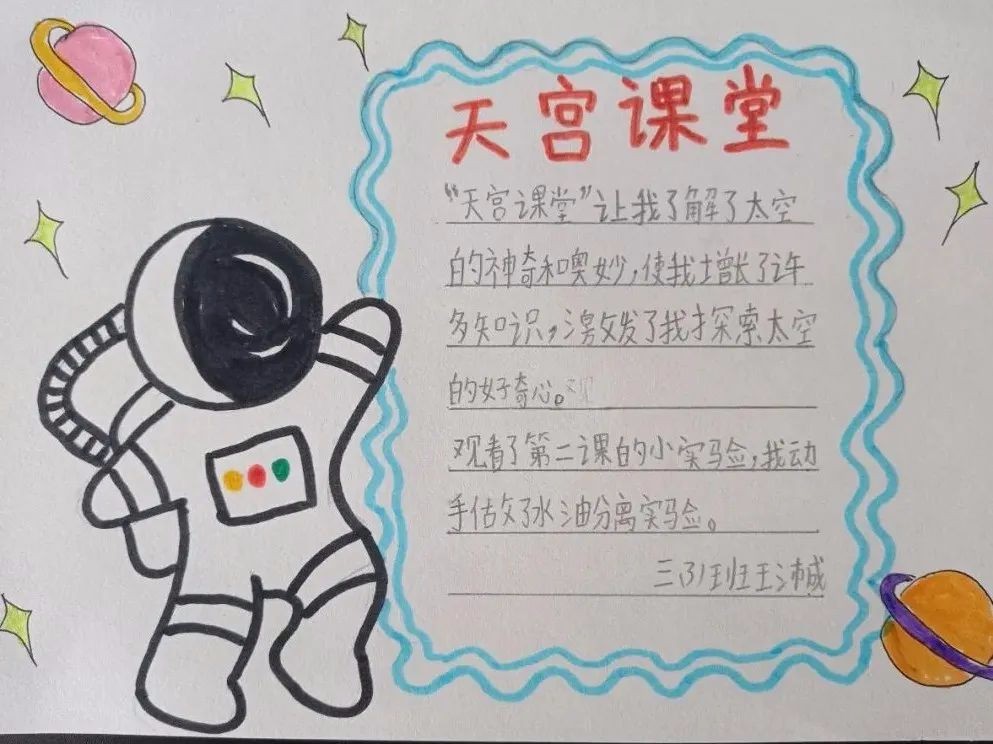 天宫课堂
“天宫课堂”让我了解了太空
的神奇和噢妙,使我增长了许
多知识,激发了我探索太空
的好奇心。观
观看了第二课的小实验,我动
手做了水油分离实验。
三(3)班王沛